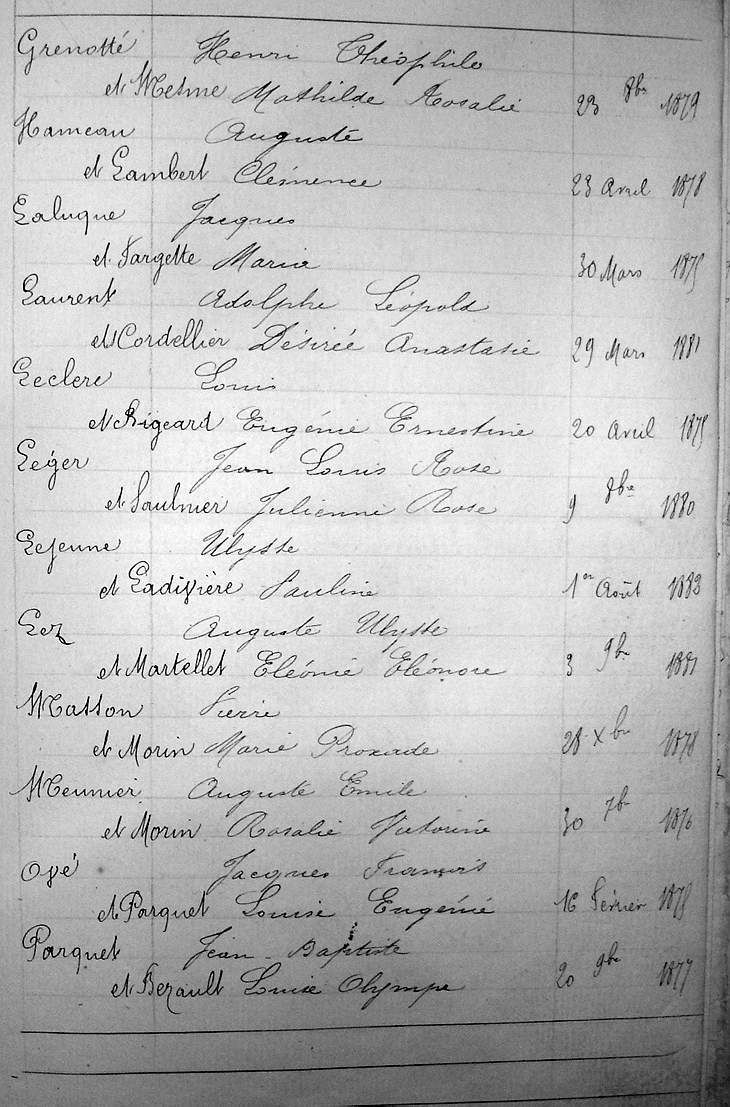 Grenotté Henri Théophile
et Mesme Mathilde Rosalie 23 8bre 1879
Hameau Auguste
et Lambert Clémence 23 Avril 1878
Laluque Jacques
et Fargette Maria 30 Mars 1875
Laurent Adolphe Léopold
et Cordellier Désirée Anastasie 29 Mars 1881
Leclere Louis
et Bigeard Eugénie Ernestine 20 Avril 1875
Léger Jean Louis Rose
et Saulnier Julienne Rose 9 8bre 1880
Lejeune Ulysse
et Ladivière Pauline 1er Août 1882
Lez Auguste Ulysse
et Martellet Eléonie Eléonore 3 9bre 1881
Masson Pierre
et Morin Marie 28 Xbre 1878
Meunier Auguste Emile
et Morin Rosalie Victorine 30 7bre 1876
Oyé Jacques François
et Parquet Louise Eugénie 16 Février 1878
Parquet Jean Baptiste
et Bezault Luise Olympe 20 9bre 1877